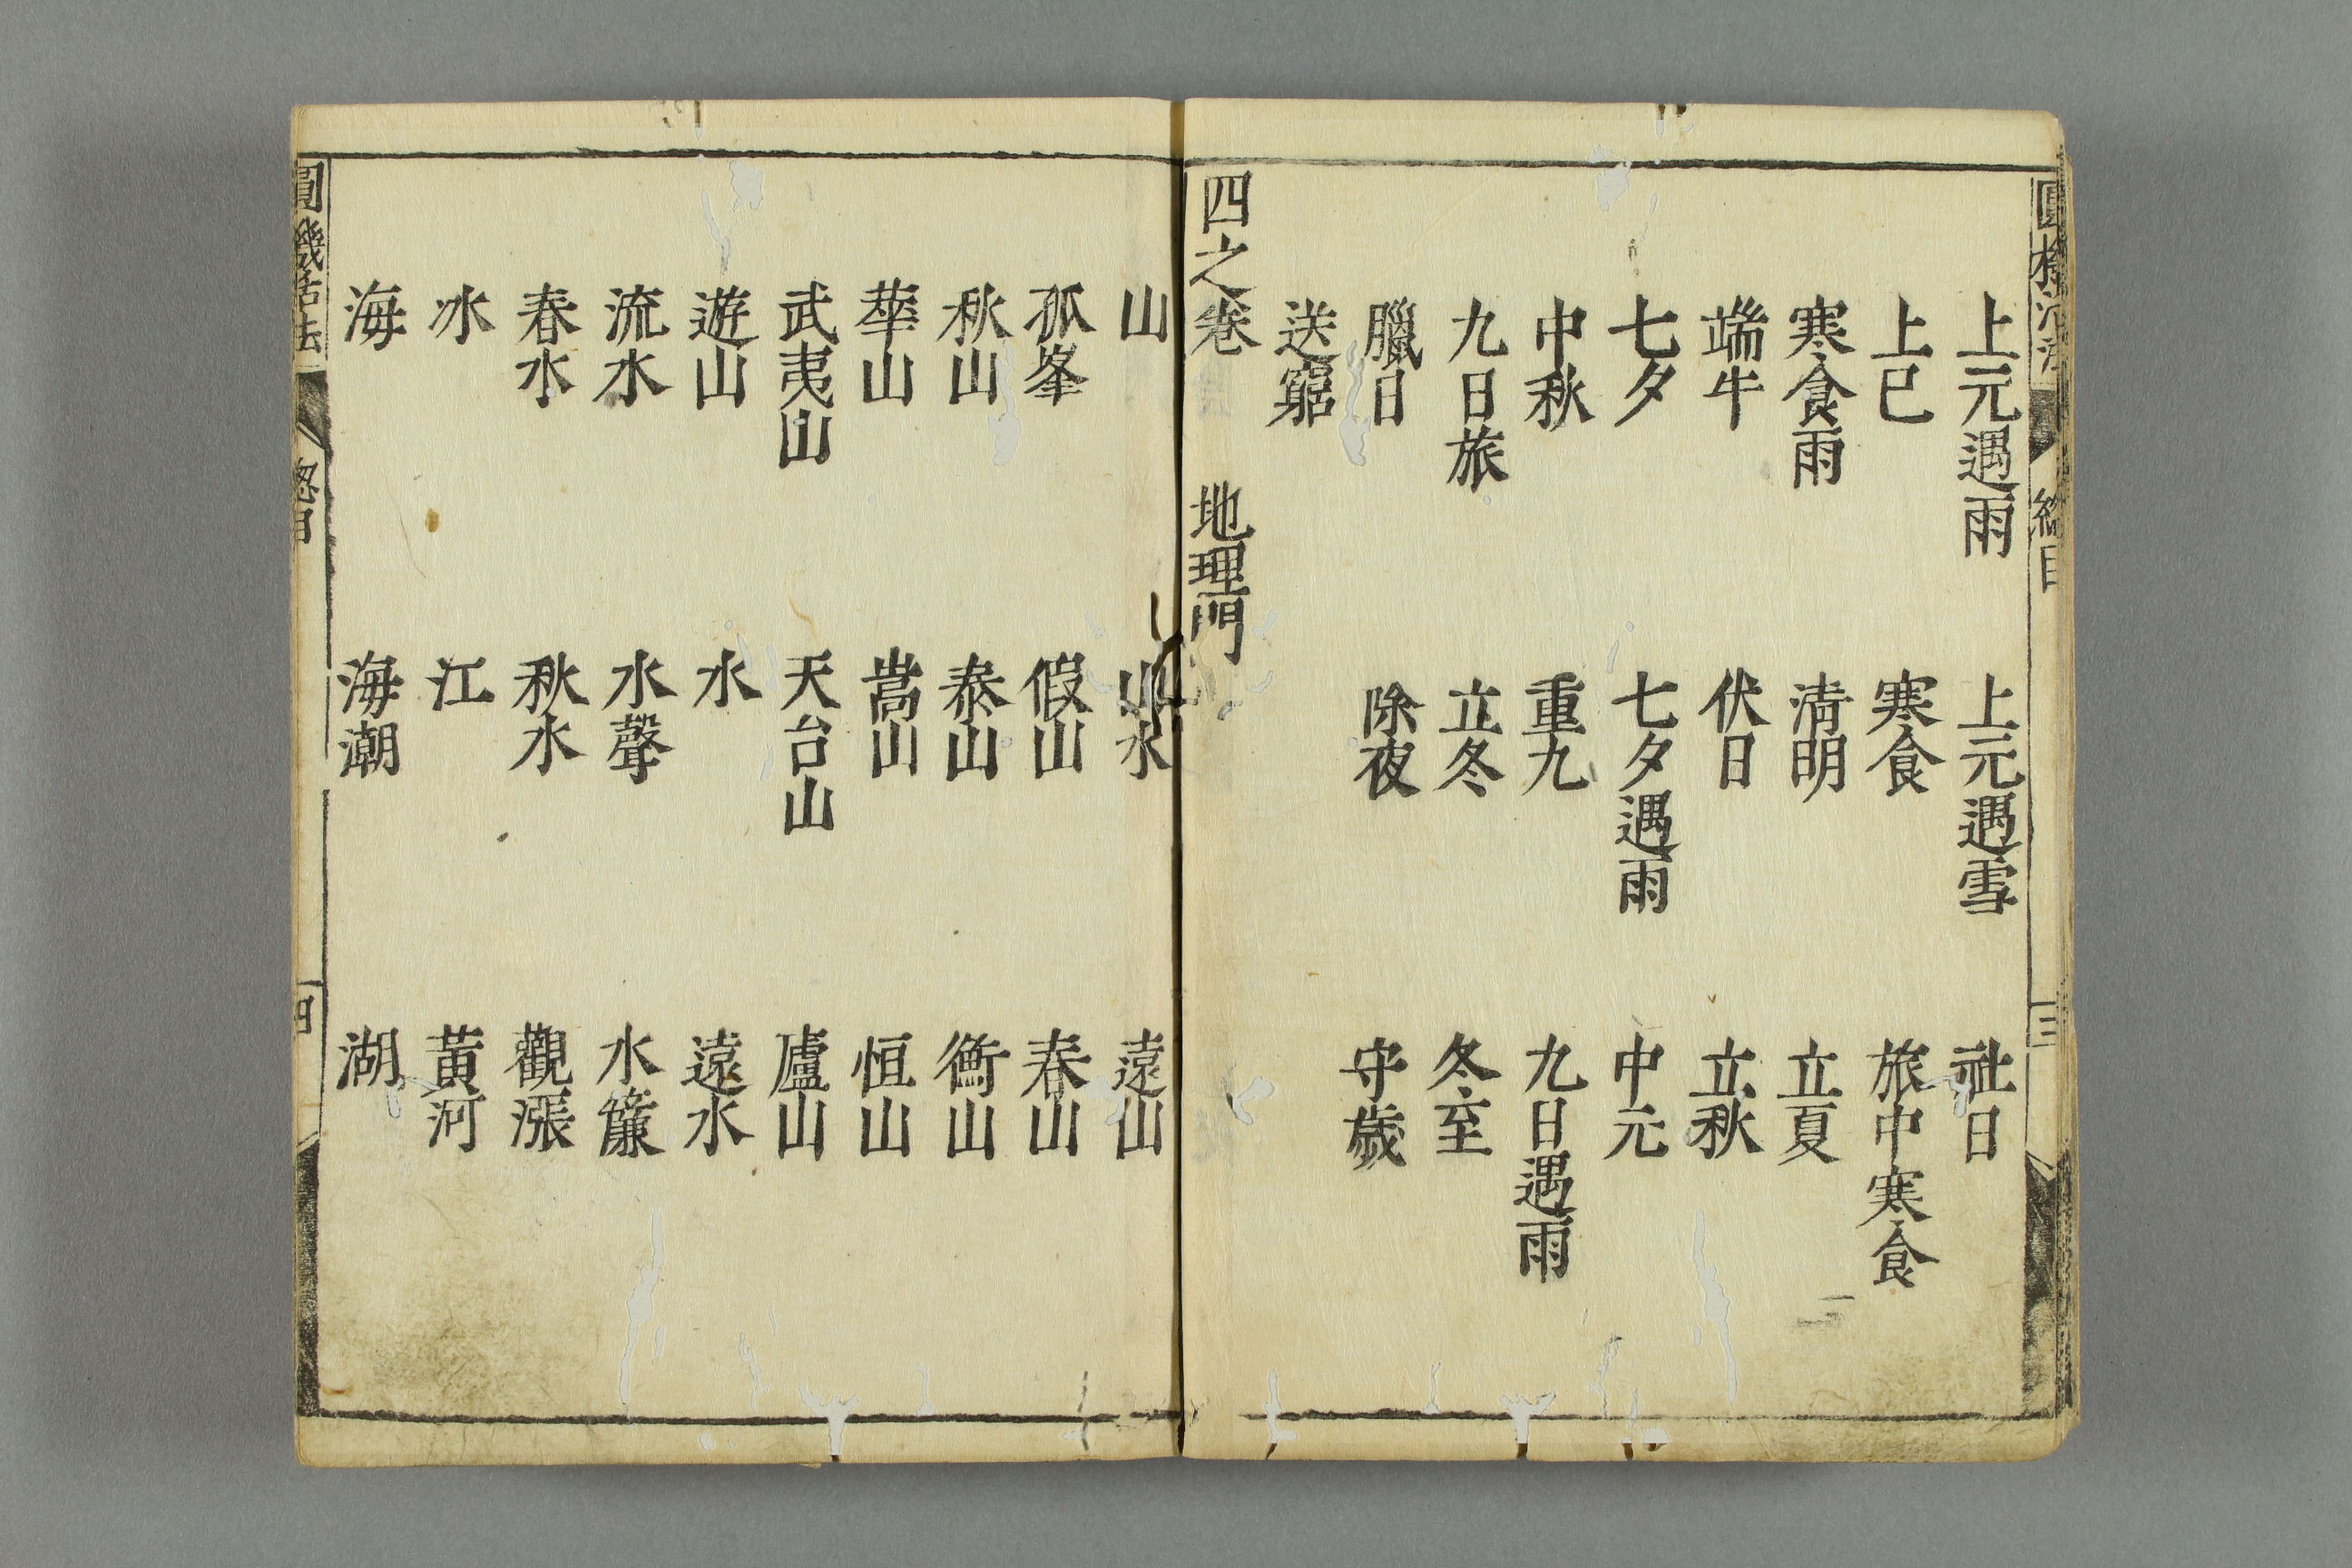 上元遇雨　上元遇雪　社日
上巳　寒食　旅中寒食
寒食雨　清明　立夏
端午　伏日　立秋
七夕　七夕遇雨　中元
中秋　重九　九日遇雨
九日旅　立冬　冬至
臘日　除夜　守歲
送窮
四之卷　地理門
山　山水　遠山
孤峯　假山　春山
秋山　泰山　衡山
華山　嵩山　恒山
武夷山　天台山　廬山
遊山　水　遠水
流水　水聲　水簾
春水　秋水　觀漲
冰　江　黃河
海　海潮　湖
圓機活法　總目　四